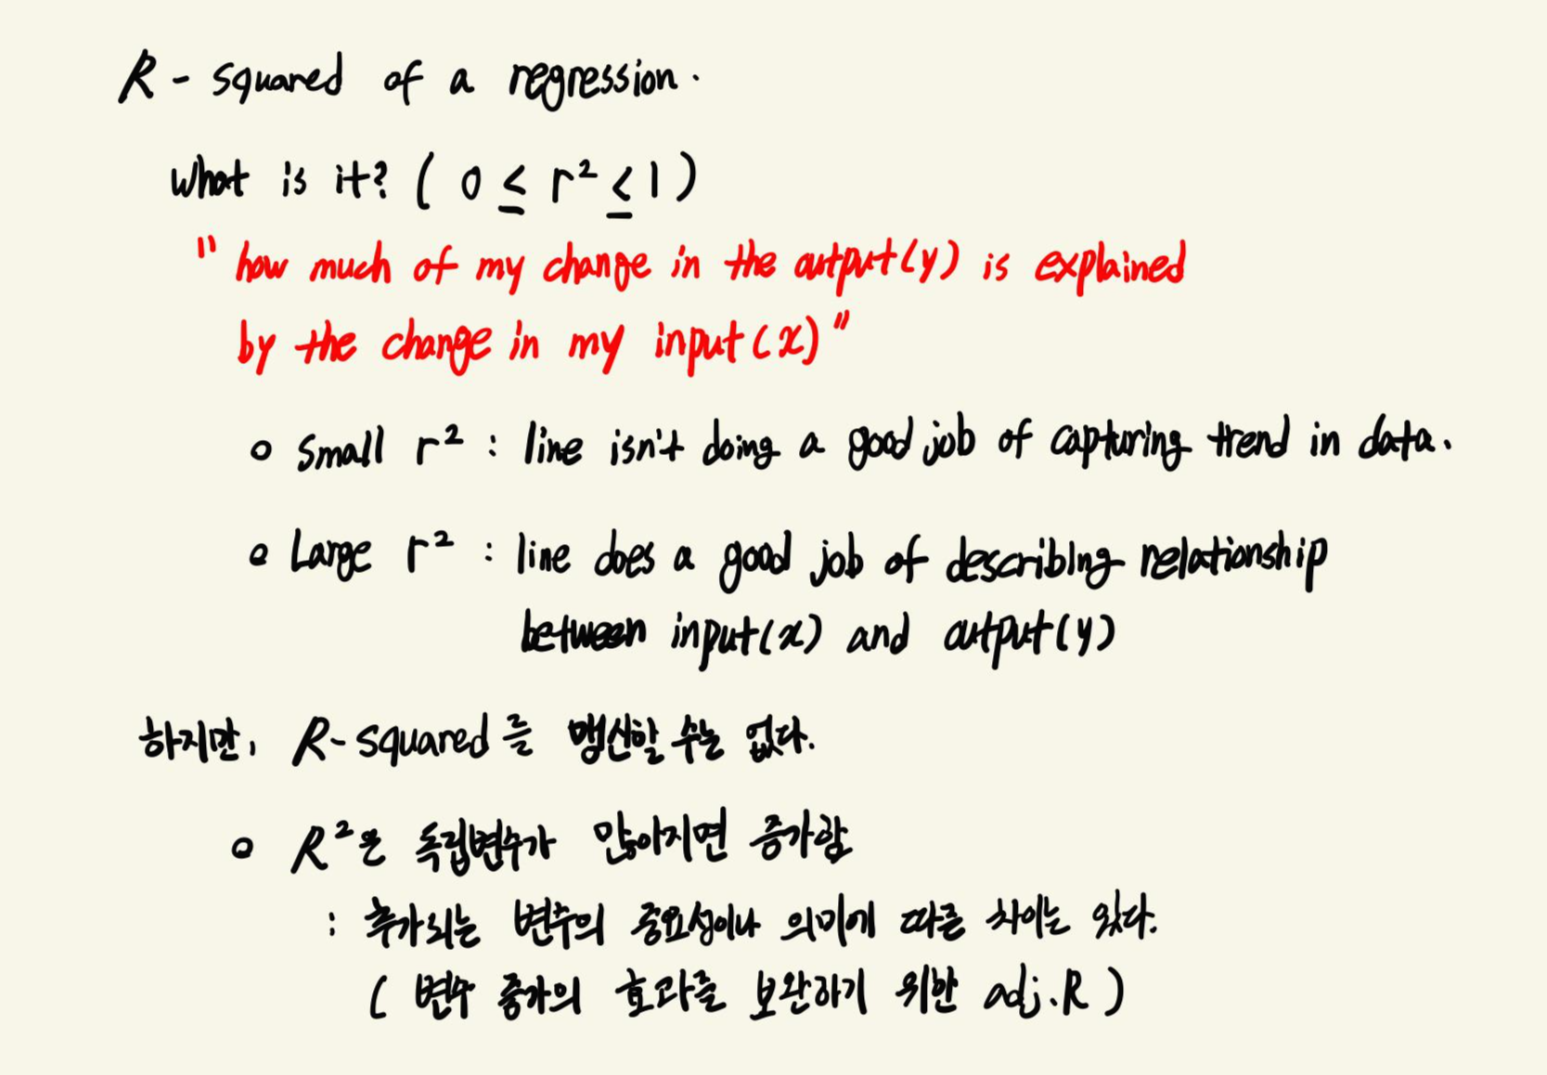 R - squared of a regression.
What is it? ( 0 ≤ r² ≤ 1 )
" how much of my change in the output(y) is explained
by the change in my input(x) "
o Small r² : line isn't doing a good job of capturing trend in data.
o Large r² : line does a good job of describing relationship
between input(x) and output(y)
하지만, R-squared를 맹신할 수는 없다.
o R²은 독립변수가 많아지면 증가함
: 추가되는 변수의 중요성이나 의미에 따른 차이는 있다.
( 변수 증가의 효과를 보완하기 위한 adj.R )